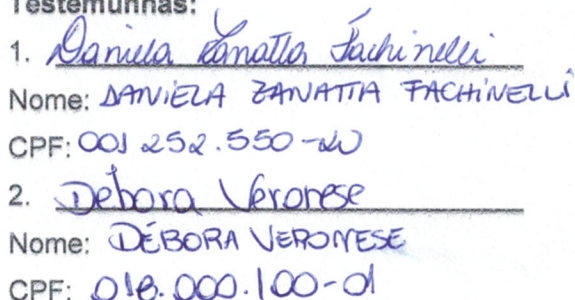 Testemunhas:
1. Daniela Zanatta Fachinelli
Nome: DANIELA ZANATTA FACHINELLI
CPF: 001 252.550-20
2. Debora Veronese
Nome: DÉBORA VERONESE
CPF: 018.000.100-01